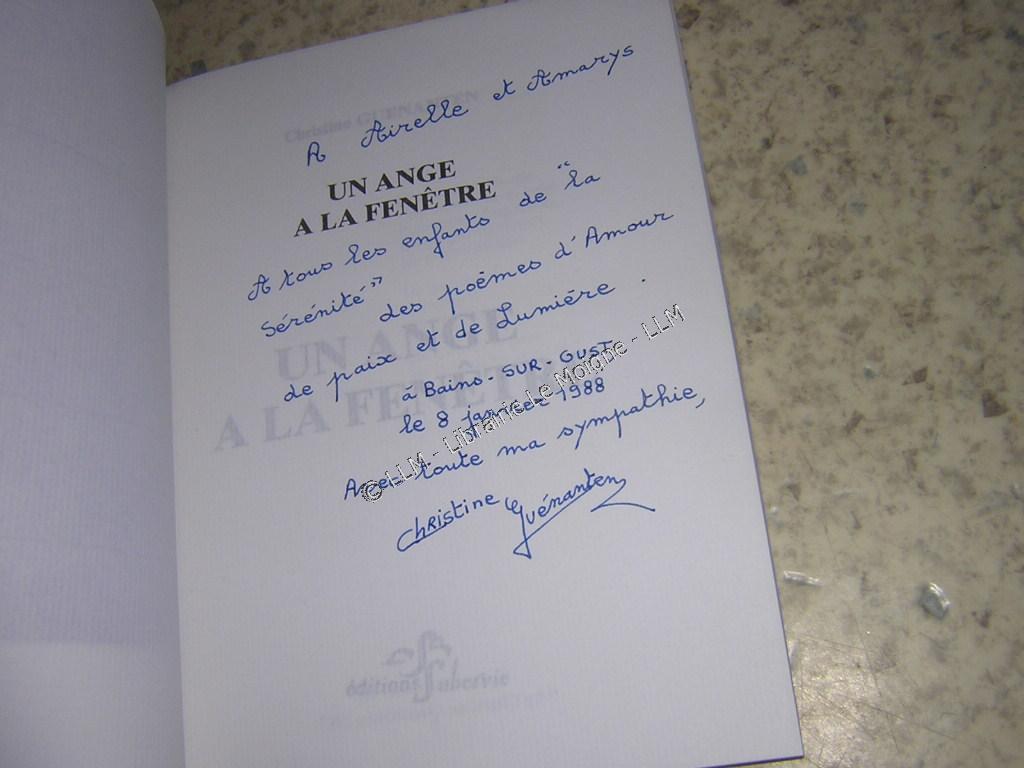 A Airelle et Amarys
Christine GUENANTEN
UN ANGE
A LA FENÊTRE
A tous les enfants de "la
Sérénité" des poèmes d'Amour
de paix et de Lumière.
UN ANGE
A LA FENÊTRE
à Bains-SUR-OUST
le 8 janvier 1988
Avec toute ma sympathie,
Christine Guénanten
éditions Subervie
© LLM - Librairie Le Moigne - LLM